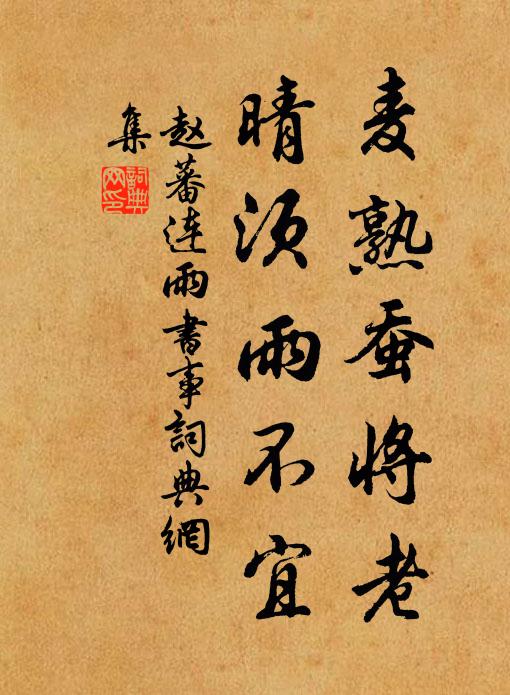 麦熟蚕将老
晴须雨不宜
赵蕃连雨书事词典網
集
詞典
网印